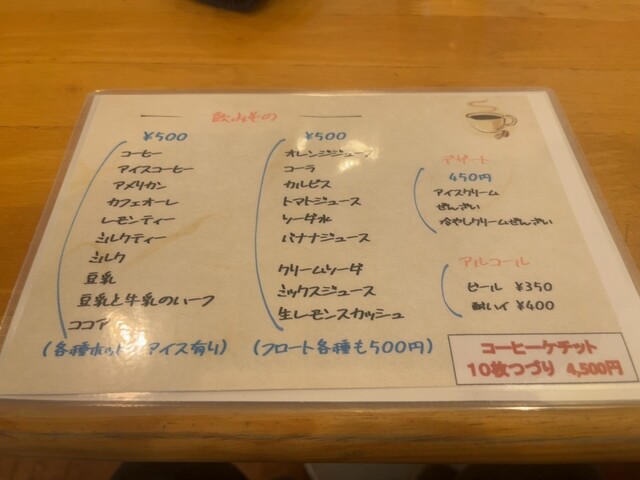 飲みもの
¥500
コーヒー
アイスコーヒー
アメリカン
カフェオーレ
レモンティー
ミルクティー
ミルク
豆乳
豆乳と牛乳のハーフ
ココア
(各種ホット アイス有り)
¥500
オレンジジュース
コーラ
カルピス
トマトジュース
ソーダ水
バナナジュース
クリームソーダ
ミックスジュース
生レモンスカッシュ
(フロート各種も500円)
デザート
450円
アイスクリーム
ぜんざい
冷やしクリームぜんざい
アルコール
ビール ¥350
酎ハイ ¥400
コーヒーケチット
10枚つづり 4,500円